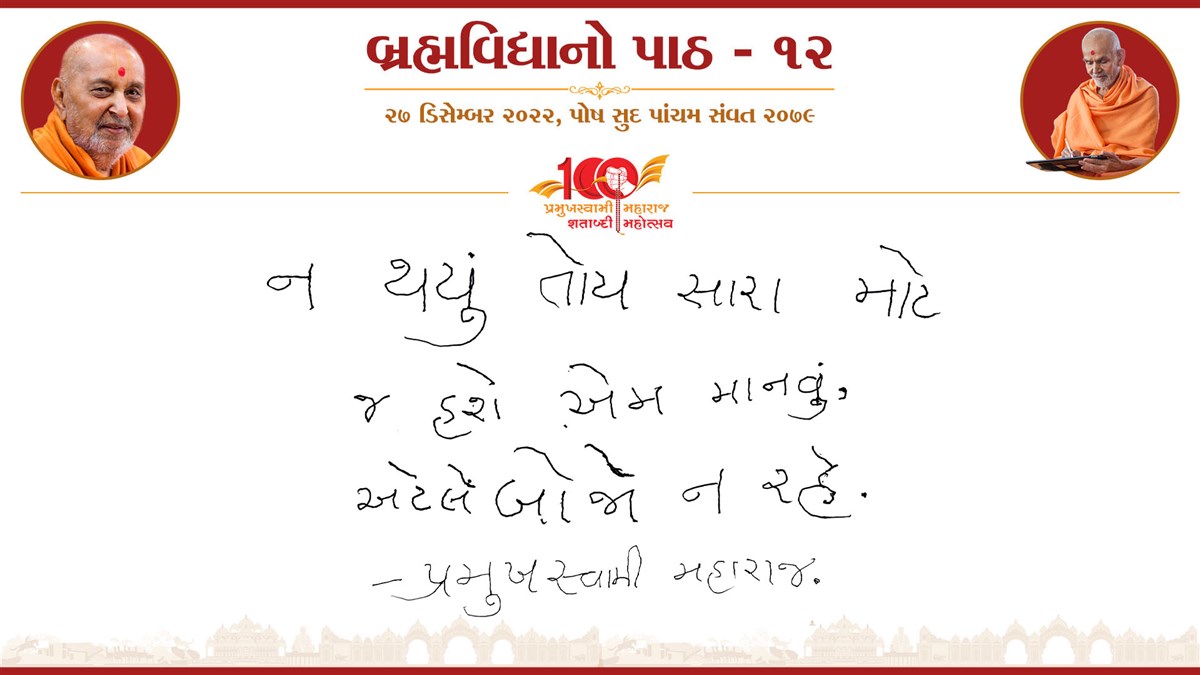 બ્રહ્મવિદ્યાનો પાઠ - ૧૨
૨૭ ડિસેમ્બર ૨૦૨૨, પોષ સુદ પાંચમ સંવત ૨૦૭૯
100
પ્રમુખસ્વામી મહારાજ
શતાબ્દી મહોત્સવ
ન થયું તોય સારા માટે
જ હશે એમ માનવું,
એટલે બોજો ન રહે.
- પ્રમુખસ્વામી મહારાજ.